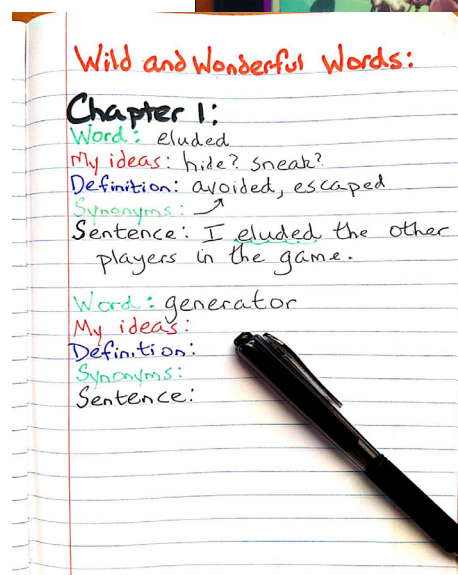 Wild and Wonderful Words:
Chapter 1:
Word: eluded
My ideas: hide? sneak?
Definition: avoided, escaped
Synonyms:
Sentence: I eluded the other
players in the game.
Word: generator
My ideas:
Definition:
Synonyms:
Sentence: